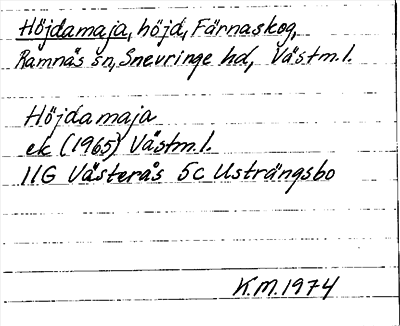 Höjdamaja, höjd, Färnaskog,
Ramnäs sn, Snevringe hd, Västm.l.
Höjdamaja
ek (1965) Västm.l.
11G Västerås 5c Usträngsbo
K.M. 1974